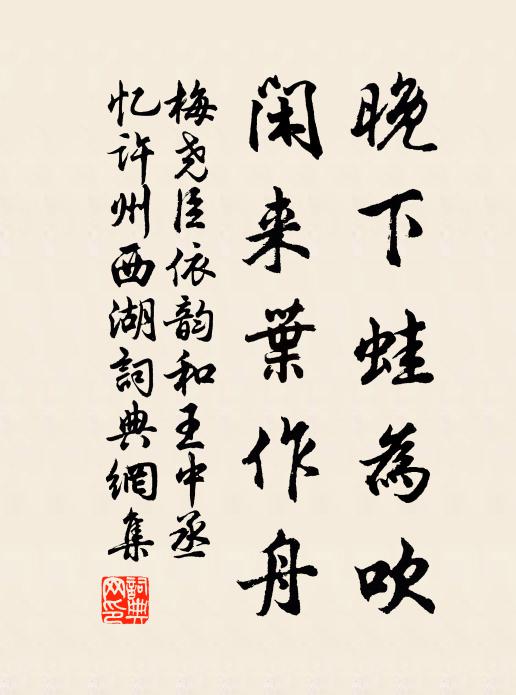 晚下蛙為吹
閑来葉作舟
梅尧臣依韵和王中丞
忆许州西湖詞典網集
詞典网印